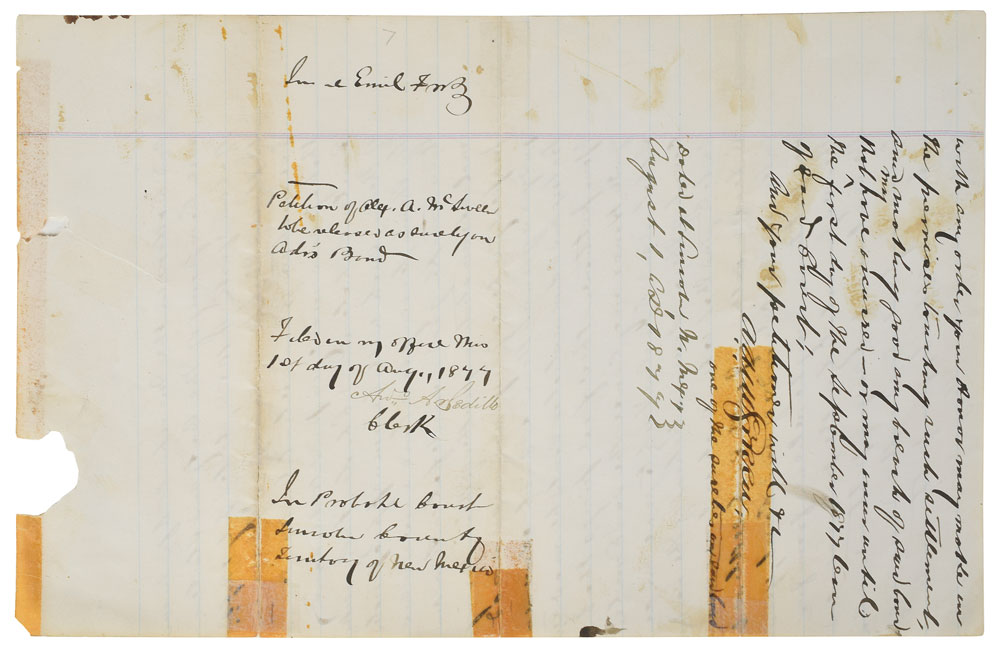 In re Emil Fritz
Petition of Alex. A. McSween
to be released as surety on
Adr's Bond
Filed in my office this
1st day of Aug., 1877
Clerk
In Probate Court
Lincoln County
Territory of New Mexico
with any order your Honor may make in
the premises touching such settlement;
and making good any breach of said bond
that may have occurred or may incur until
the first day of the September 1877 term
of said Court;
And your petitioner will &c
A A McSween
one of the sureties on said bond
Dated at Lincoln N. Mex
August 1, AD 1877